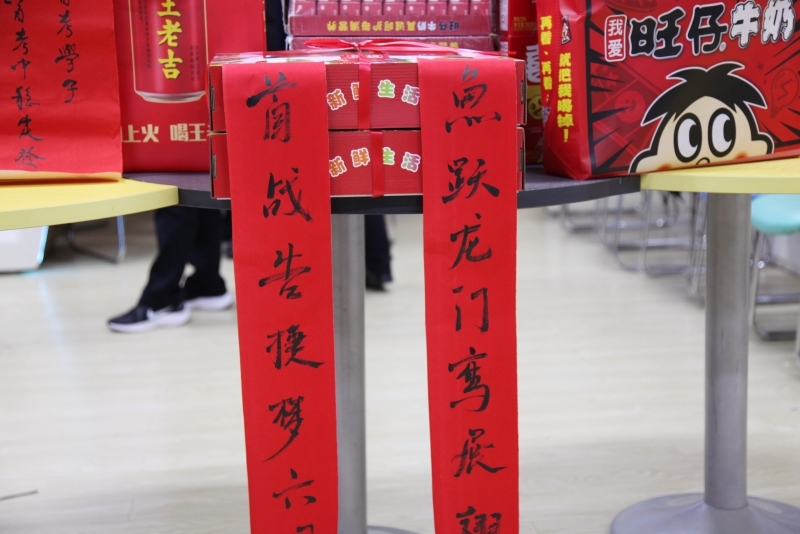 考學子
考中
王老吉
上火 喝王
首战告捷梦六
新鲜生活
新鲜生活
鱼跃龙门
展
再看、再看、
就把我喝掉!
我爱
旺仔牛奶